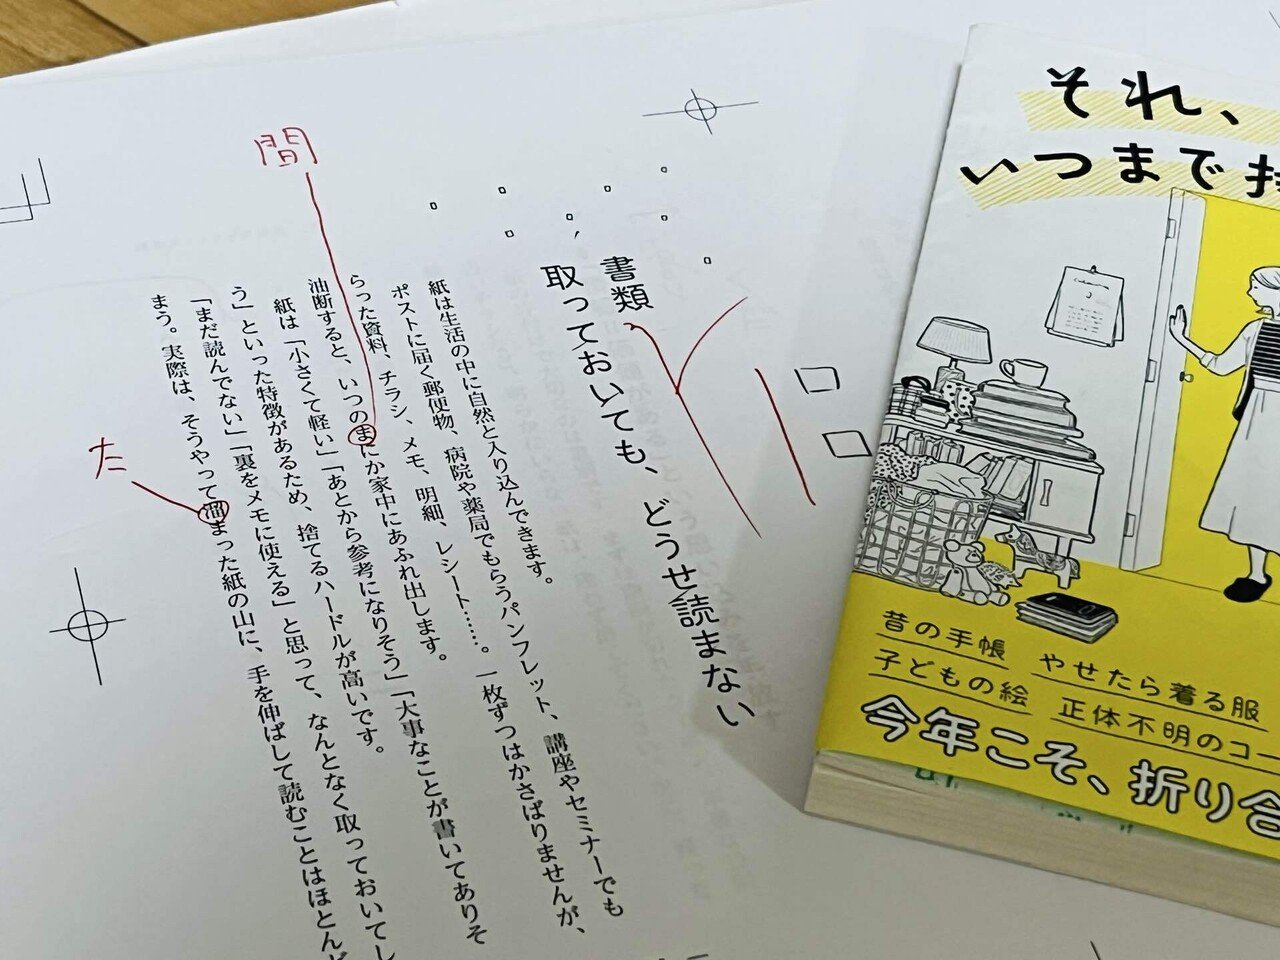 書類
取っておいても、どうせ読まない
紙は生活の中に自然と入り込んできます。
ポストに届く郵便物、病院や薬局でもらうパンフレット、講座やセミナーでも
らった資料、チラシ、メモ、明細、レシート……。一枚ずつはかさばりませんが、
油断すると、いつのまにか家中にあふれ出します。
紙は「小さくて軽い」「あとから参考になりそう」「大事なことが書いてありそ
う」といった特徴があるため、捨てるハードルが高いです。
「まだ読んでない」「裏をメモに使える」と思って、なんとなく取っておいてし
まう。実際は、そうやって溜まった紙の山に、手を伸ばして読むことはほとんど
間
た
それ、
いつまで持
昔の手帳 やせたら着る服
子どもの絵 正体不明のコー
今年こそ、折り合